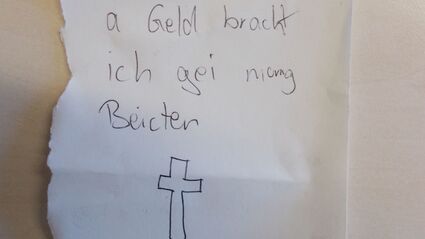 a Geld bracht
ich gei
Beicten